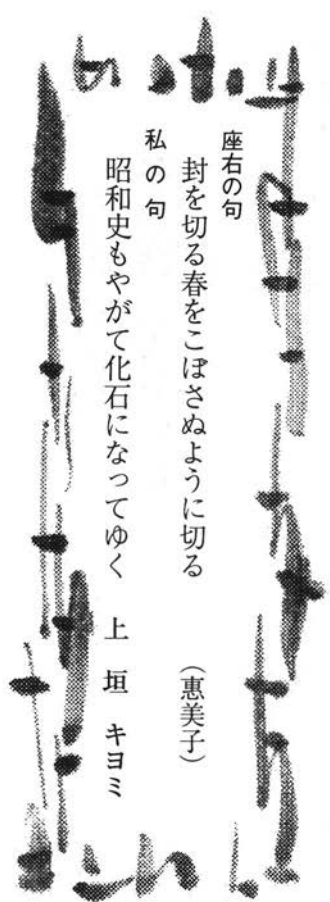 座右の句
封を切る春をこぼさぬように切る　　（惠美子）
私の句
昭和史もやがて化石になってゆく　　上垣　キヨミ